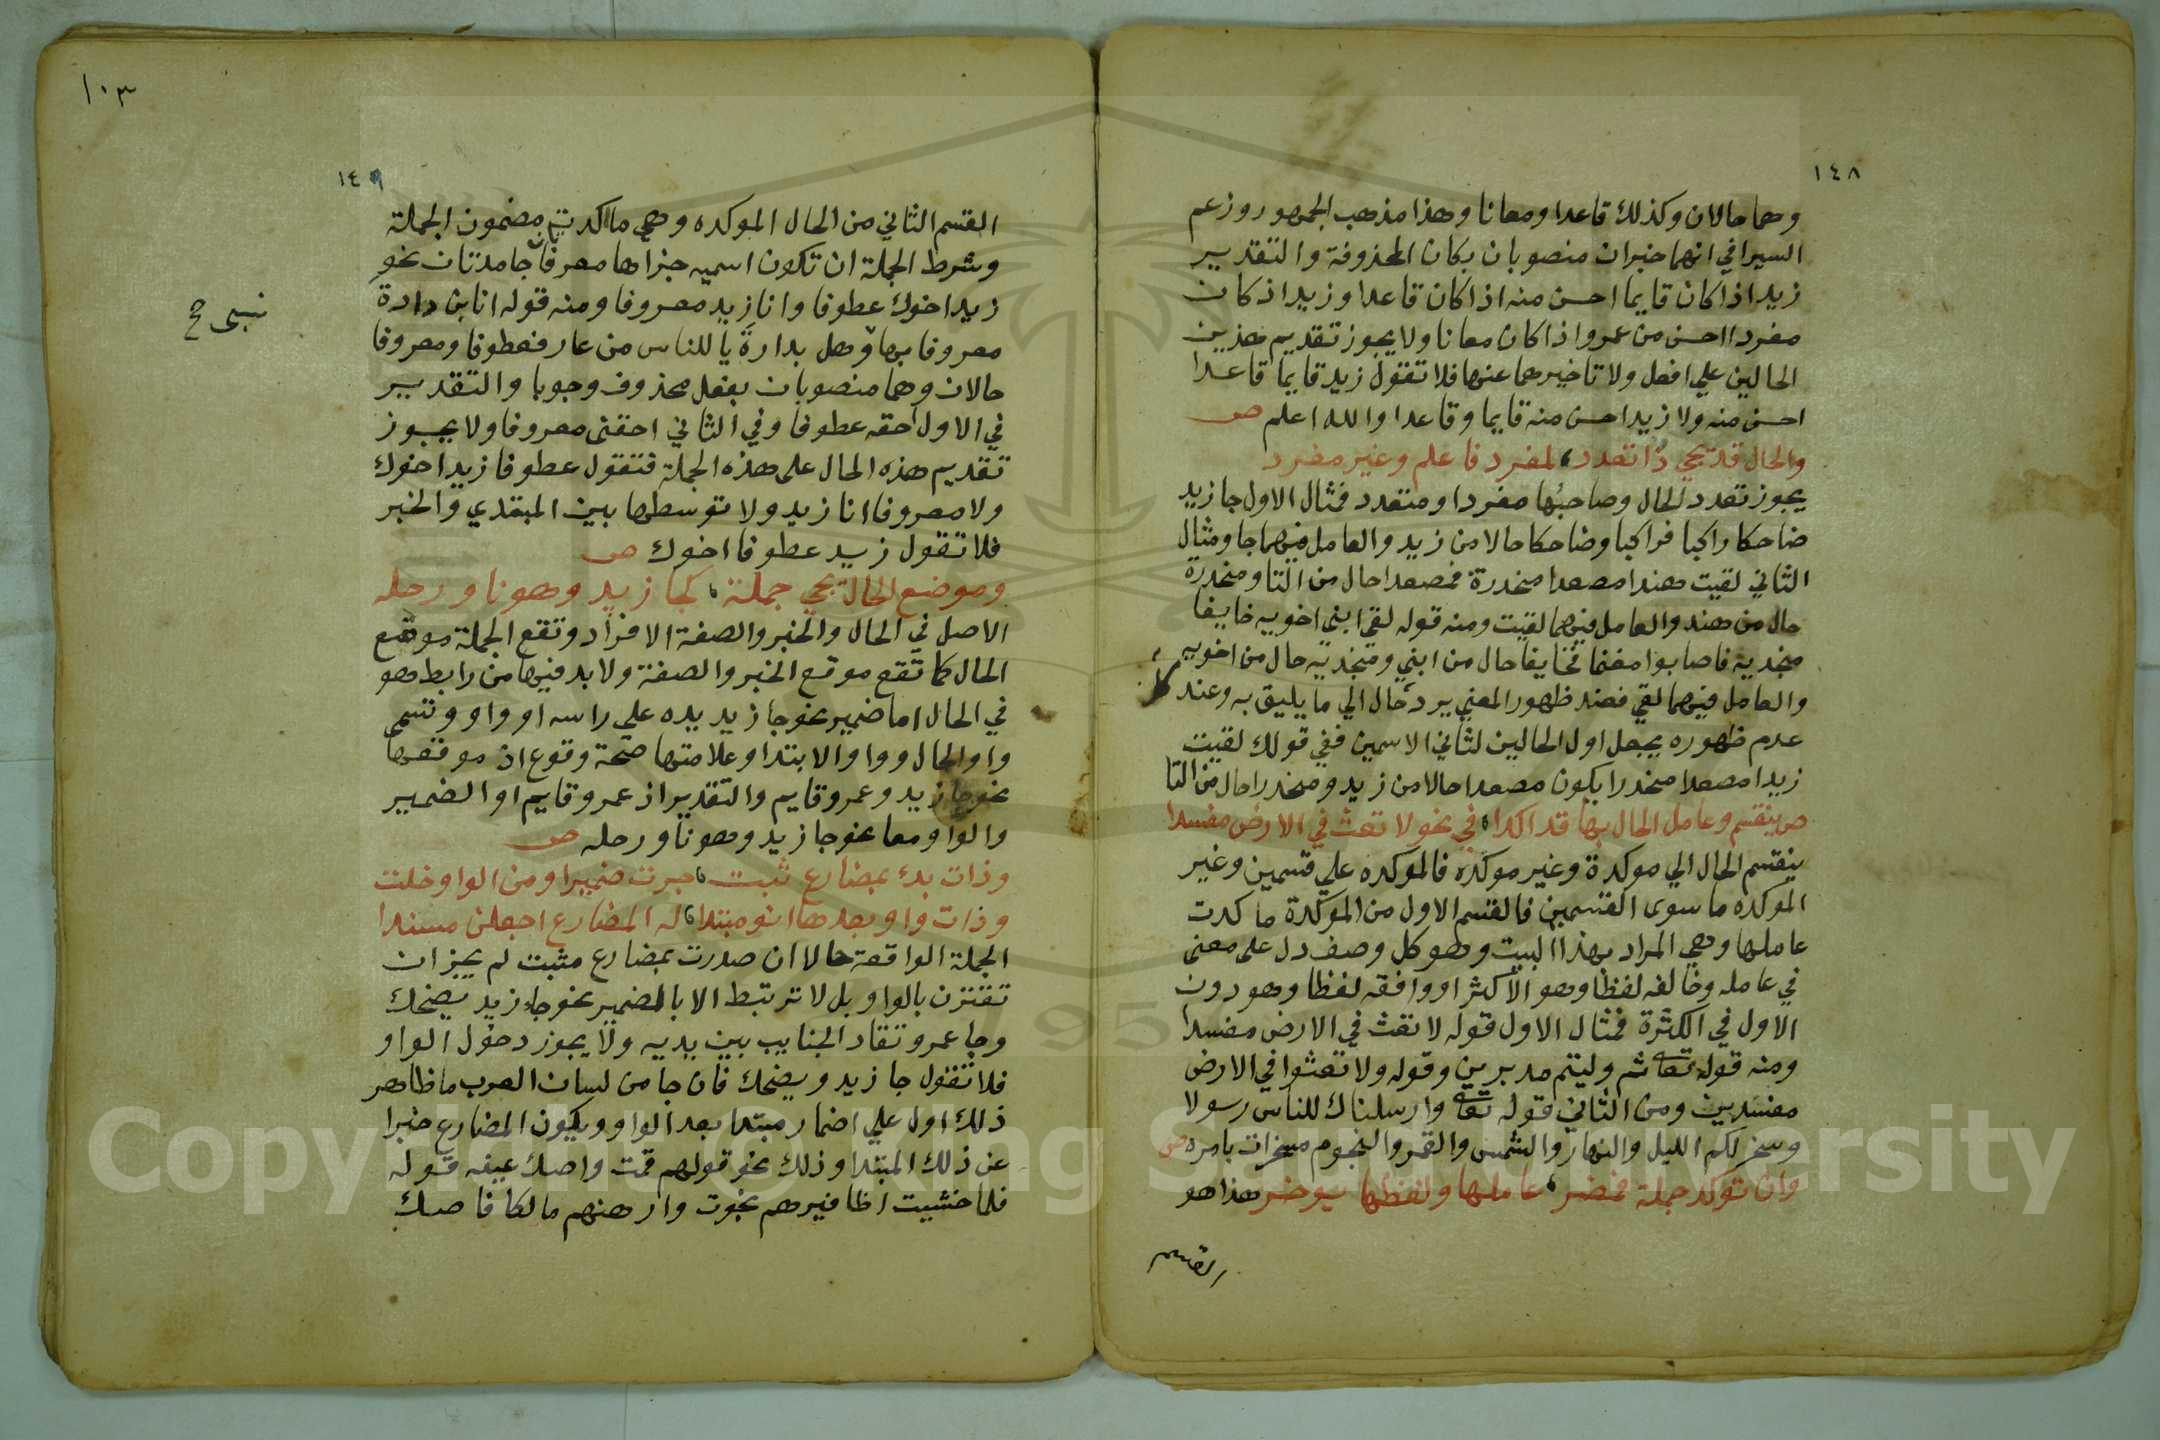 ١٤٨
وهما حالان وكذلك قاعدا ومعانا وهذا مذهب الجمهور وزعم
السيرافي انهما خبران منصوبان بكان المحذوفة والتقدير
زيد اذا كان قايما احسن منه اذا كان قاعدا وزيد اذ كان
مفردا احسن من عمرو اذا كان معانا ولا يجوز تقديم هذين
الحالين علي افعل ولا تاخيرهما عنها فلا تقول زيد قايما قاعدا
احسن منه ولا زيد احسن منه قايما وقاعدا والله اعلم ص
والحال قد يجي ذا تعدد لمفرد فاعلم وغير مفرد
يجوز تعدد الحال وصاحبها مفردا ومتعدد فمثال الاول جا زيد
ضاحكا راكبا فراكبا وضاحكا حالا من زيد والعامل فيهما جا ومثال
الثاني لقيت هندا مصعدا منحدرة فمصعدا حال من التا ومنحدرة
حال من هند والعامل فيهما لقيت ومنه قوله لقى ابني اخويه خايفا
منجديه فاصابوا مغنما فخايفا حال من ابني ومنجديه حال من اخويه
والعامل فيهما لقي فعند ظهور المعني يرد حال الي ما يليق به وعند
عدم ظهوره يجعل اول الحالين لثاني الاسمين ففي قولك لقيت
زيدا مصعدا منحدرا يكون مصعدا حالا من زيد ومنحدرا حال من التا
ص ينقسم وعامل الحال بها قد اكدا في نحو لا تعث في الارض مفسدا
ينقسم الحال الي موكدة وغير موكده فالموكده علي قسمين وغير
الموكده ما سوى القسمين فالقسم الاول من الموكدة ما كدت
عاملها وهي المراد بهذا البيت وهو كل وصف دل على معنى
في عامله وخالفه لفظا وهو الاكثر او وافقه لفظا وهو دون
الاول في الكثرة فمثال الاول قوله لا تعث في الارض مفسدا
ومنه قوله تعا ثم وليتم مدبرين وقوله ولا تعثوا في الارض
مفسدين ومن الثاني قوله تعا وارسلناك للناس رسولا
وسخر لكم الليل والنهار والشمس والقمر والنجوم مسخرات بامره ص
وان توكد جملة فمضمر عاملها ولفظها يوخر هذا هو
القسم
١٠٣
١٤٩
القسم الثاني من الحال الموكده وهي ما اكدت مضمون الجملة
وشرط الجملة ان تكون اسميه جزاها معرفتان جامدتان نحو
زيد اخوك عطوفا وانا زيد معروفا ومنه قوله انا ابن دارة
معروفا بها وهل بدارة يا للناس من عار فعطوفا ومعروفا
حالان وهما منصوبان بفعل محذوف وجوبا والتقدير
في الاول احقه عطوفا وفي الثاني احقنى معروفا ولا يجوز
تقديم هذه الحال على هذه الجملة فتقول عطوفا زيد اخوك
ولا معروفا انا زيد ولا توسطها بين المبتدي والخبر
فلا تقول زيد عطوفا اخوك ص
وموضع الحال تجي جملة كجا زيد وهو ناو رحله
الاصل في الحال والخبر والصفة الافراد وتقع الجملة موقع
الحال كما تقع موقع الخبر والصفة ولا بد فيها من رابط وهو
في الحال اما ضمير نحو جا زيد يده علي راسه او واو وتسمى
واو الحال وواو الابتدا وعلامتها صحة وقوع اذ موقعها
نحو جا زيد وعمرو قايم والتقدير اذ عمرو قايم او الضمير
والواو معا نحو جا زيد وهو ناو رحله ص
وذات بدء بمضارع ثبت حوت ضميرا ومن الواو خلت
وذات واو بعدها انو مبتدا له المضارع اجعلن مسندا
الجملة الواقعة حالا ان صدرت بمضارع مثبت لم يجز ان
تقترن بالواو بل لا تربتط الا بالمضمير نحو جاء زيد يضحك
وجا عمرو تقاد الجنايب بين يديه ولا يجوز دخول الواو
فلا تقول جا زيد ويضحك فان جا من لسان العرب ما ظاهر
ذلك اول علي اضمار مبتدا بعد الواو ويكون المضارع خبرا
عن ذلك المبتدا وذلك نحو قولهم قمت واصك عينه قوله
فلما خشيت اظافيرهم نجوت وارهنهم مالكا فاصك
Copyright © King Saud University